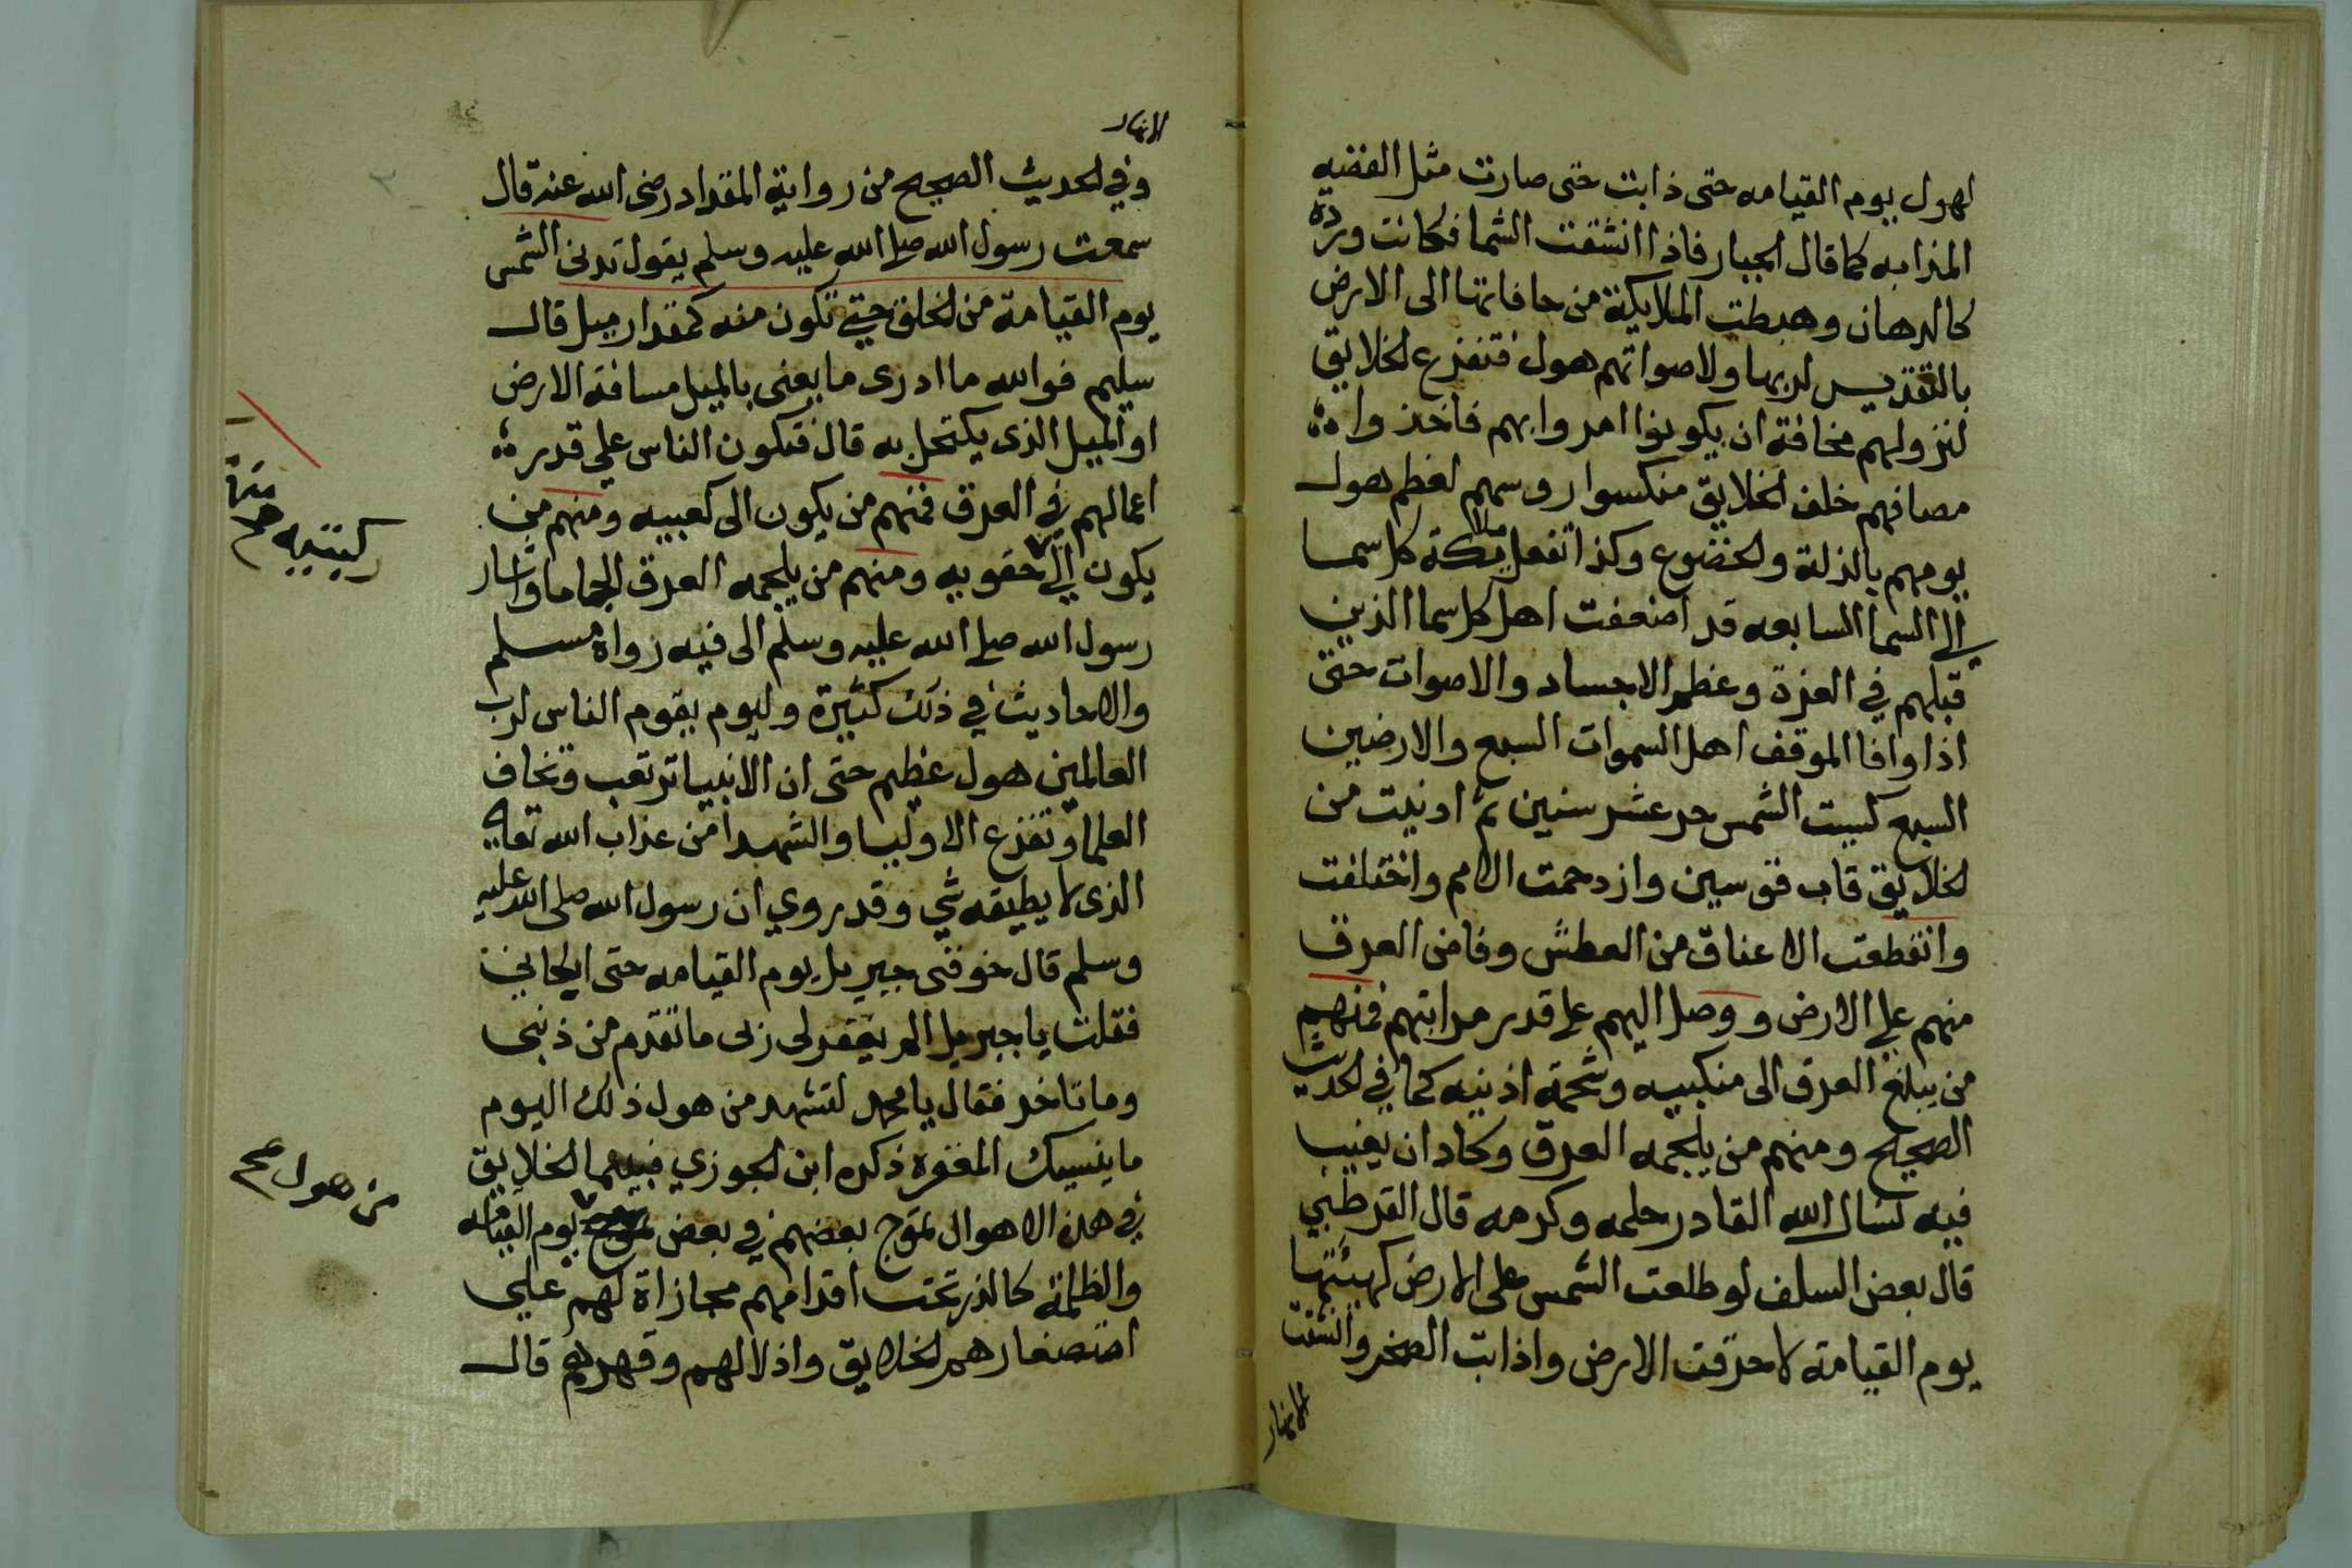 لهول يوم القيامه حتى ذابت حتى صارت مثل الفضيه
المذابه كما قال الجبار فاذا انشقت السما فكانت وردة
كالدهان وهبطت الملايكة من حافاتها الى الارض
بالتقديس لربها ولاصواتهم هول فتفزع الخلايق
لنزولهم مخافة ان يكونوا امروا بهم فاخذوا
مصافهم خلف الخلايق منكسوا روسهم لعظم هول
يومهم بالذلة والخضوع وكذا تفعل ملايكة كل سما
الى السما السابعه قد اضعفت اهل كل سما الذين
قبلهم في العزة وعظم الاجساد والاصوات حتى
اذا وافا الموقف اهل السموات السبع والارضين
السبع كسيت الشمس حر عشر سنين ثم ادنيت من
الخلايق قاب قوسين وازدحمت الامم واختلفت
وانقطعت الاعناق من العطش وفاض العرق
منهم على الارض ووصل اليهم على قدر مراتبهم فمنهم
من يبلغ العرق الى منكبيه وشحمة اذنيه كما في الحديث
الصحيح ومنهم من يلجمه العرق وكاد ان يغيب
فيه نسال الله القادر حلمه وكرمه قال القرطبي
قال بعض السلف لو طلعت الشمس على الارض كهيئتها
يوم القيامة لاحرقت الارض واذابت الصخر وانشفت
الانهار
الانهار
وفي الحديث الصحيح من رواية المقداد رضى الله عنه قال
سمعت رسول الله صلى الله عليه وسلم يقول تدنى الشمس
يوم القيامة من الخلق حتى تكون منه كمقدار ميل قال
سليم فوالله ما ادرى ما يعنى بالميل مسافة الارض
او الميل الذى يكتحل به قال فتكون الناس على قدر
اعمالهم في العرق فمنهم من يكون الى كعبيه ومنهم من
يكون الى حقويه ومنهم من يلجمه العرق الجاما واشار
ركبتيه صح
رسول الله صلى الله عليه وسلم الى فيه رواه مسلم
والاحاديث في ذلك كثيرة وليوم يقوم الناس لرب
العالمين هول عظيم حتى ان الانبيا ترتعب وتخاف
العلما وتفزع الاوليا والشهدا من عذاب الله تعالى
الذى لا يطيقه شي وقد روي ان رسول الله صلى الله عليه
وسلم قال خوفنى جبريل يوم القيامه حتى ابكانى
فقلت يا جبريل الم يغفر لى ربى ما تقدم من ذنبى
وما تاخر فقال يا محمد لتشهد من هول ذلك اليوم
ما ينسيك المغفرة ذكره ابن الجوزي فبينما الخلايق
في هذه الاهوال تموج بعضهم في بعض يوم القيامه
من هول صح
والظلمة كالذر تحت اقدامهم مجازاة لهم على
استصغارهم الخلايق واذلالهم وقهرهم قال